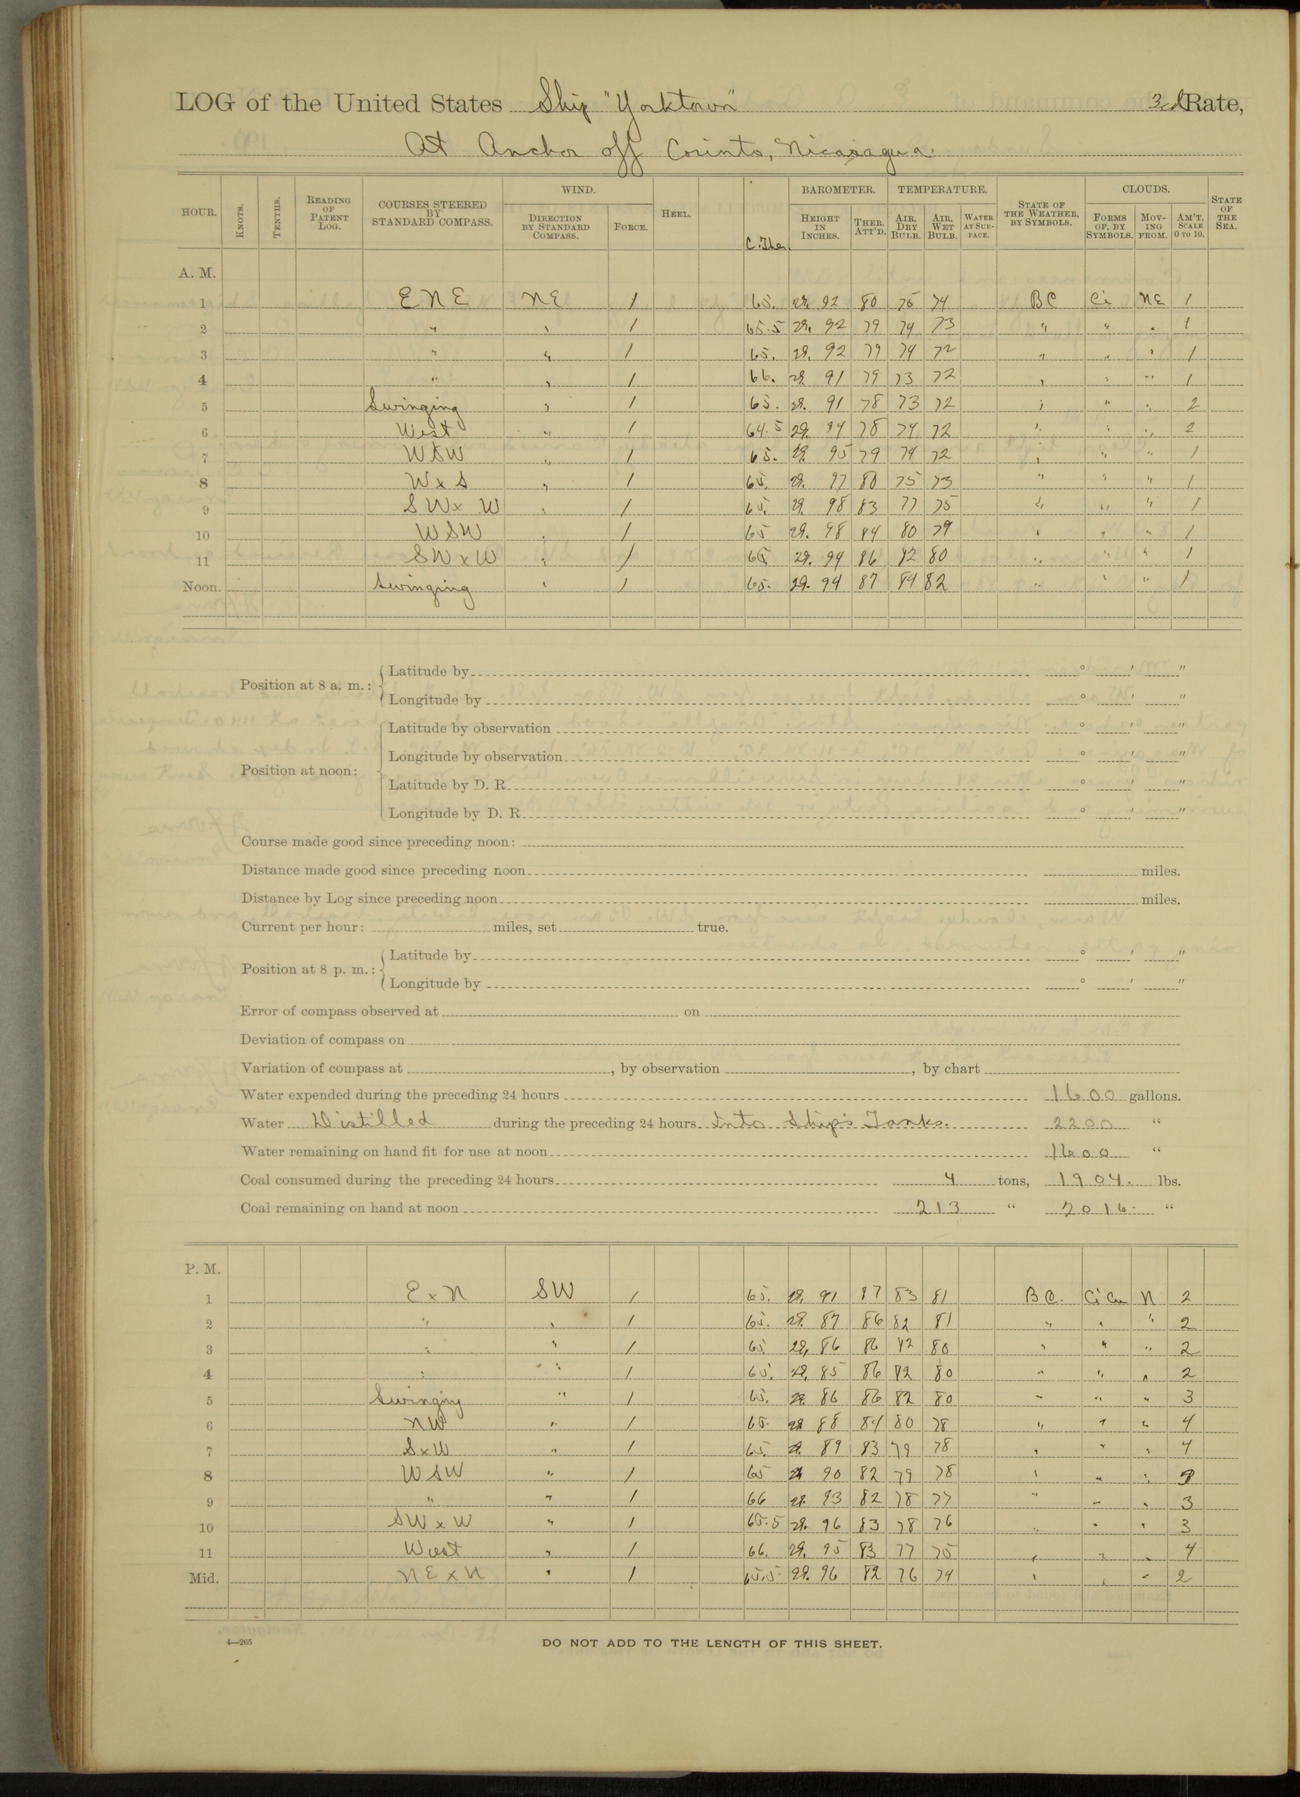 LOG of the United States Ship "Yorktown" 3rd Rate,
At Anchor off Corinto, Nicaragua.
HOUR. KNOTS. TENTHS. READING OF PATENT LOG. COURSES STEERED BY STANDARD COMPASS. WIND. DIRECTION BY STANDARD COMPASS. FORCE. HEEL. C. Ther. BAROMETER. HEIGHT IN INCHES. THER. ATT'D. TEMPERATURE. AIR, DRY BULB. AIR, WET BULB. WATER AT SURFACE. STATE OF THE WEATHER, BY SYMBOLS. CLOUDS. FORMS OF, BY SYMBOLS. MOVING FROM. AM'T. SCALE 0 TO 10. STATE OF THE SEA.
A. M.
1 ENE NE 1 65. 29. 92 80 75 74 BC Ci NE 1
2 " " 1 65.5 29. 92 79 74 73 " " " 1
3 " " 1 65. 29. 92 79 74 72 " " " 1
4 " " 1 66. 29. 91 79 73 72 " " " 1
5 Swinging " 1 65. 29. 91 78 73 72 " " " 2
6 West " 1 64.5 29. 94 78 74 72 " " " 2
7 WSW " 1 65. 29. 95 79 74 72 " " " 1
8 WxS " 1 65. 29. 97 80 75 73 " " " 1
9 SWxW " 1 65. 29. 98 83 77 75 " " " 1
10 WSW " 1 65 29. 98 84 80 79 " " " 1
11 SWxW " 1 65 29. 94 86 82 80 " " " 1
Noon. Swinging " 1 65. 29. 94 87 84 82 " " " 1
Position at 8 a. m.: Latitude by ° ' "
Longitude by ° ' "
Position at noon: Latitude by observation ° ' "
Longitude by observation ° ' "
Latitude by D. R. ° ' "
Longitude by D. R. ° ' "
Course made good since preceding noon:
Distance made good since preceding noon miles.
Distance by Log since preceding noon miles.
Current per hour: miles, set true.
Position at 8 p. m.: Latitude by ° ' "
Longitude by ° ' "
Error of compass observed at on
Deviation of compass on
Variation of compass at , by observation , by chart
Water expended during the preceding 24 hours 1600 gallons.
Water Distilled during the preceding 24 hours Into Ship's Tanks. 2200 "
Water remaining on hand fit for use at noon 1600 "
Coal consumed during the preceding 24 hours 4 tons, 1904. lbs.
Coal remaining on hand at noon 213 " 2016. "
P. M.
1 ExN SW 1 65. 29. 91 87 83 81 BC. Ci Cu N 2
2 " " 1 65. 29. 87 86 82 81 " " " 2
3 " " 1 65 29. 86 86 82 80 " " " 2
4 " " 1 65. 29. 85 86 82 80 " " " 2
5 Swinging " 1 65. 29. 86 86 82 80 " " " 3
6 NW " 1 65. 29 88 84 80 78 " " " 4
7 SxW " 1 65. 29. 89 83 79 78 " " " 4
8 WSW " 1 65 29 90 82 79 78 " " "
9 " " 1 66 29. 93 82 78 77 " " " 3
10 SWxW " 1 65.5 29. 96 83 78 76 " " " 3
11 West " 1 66. 29. 95 83 77 75 " " " 4
Mid. NExN " 1 65.5 29. 96 82 76 74 " " " 2
4—265
DO NOT ADD TO THE LENGTH OF THIS SHEET.